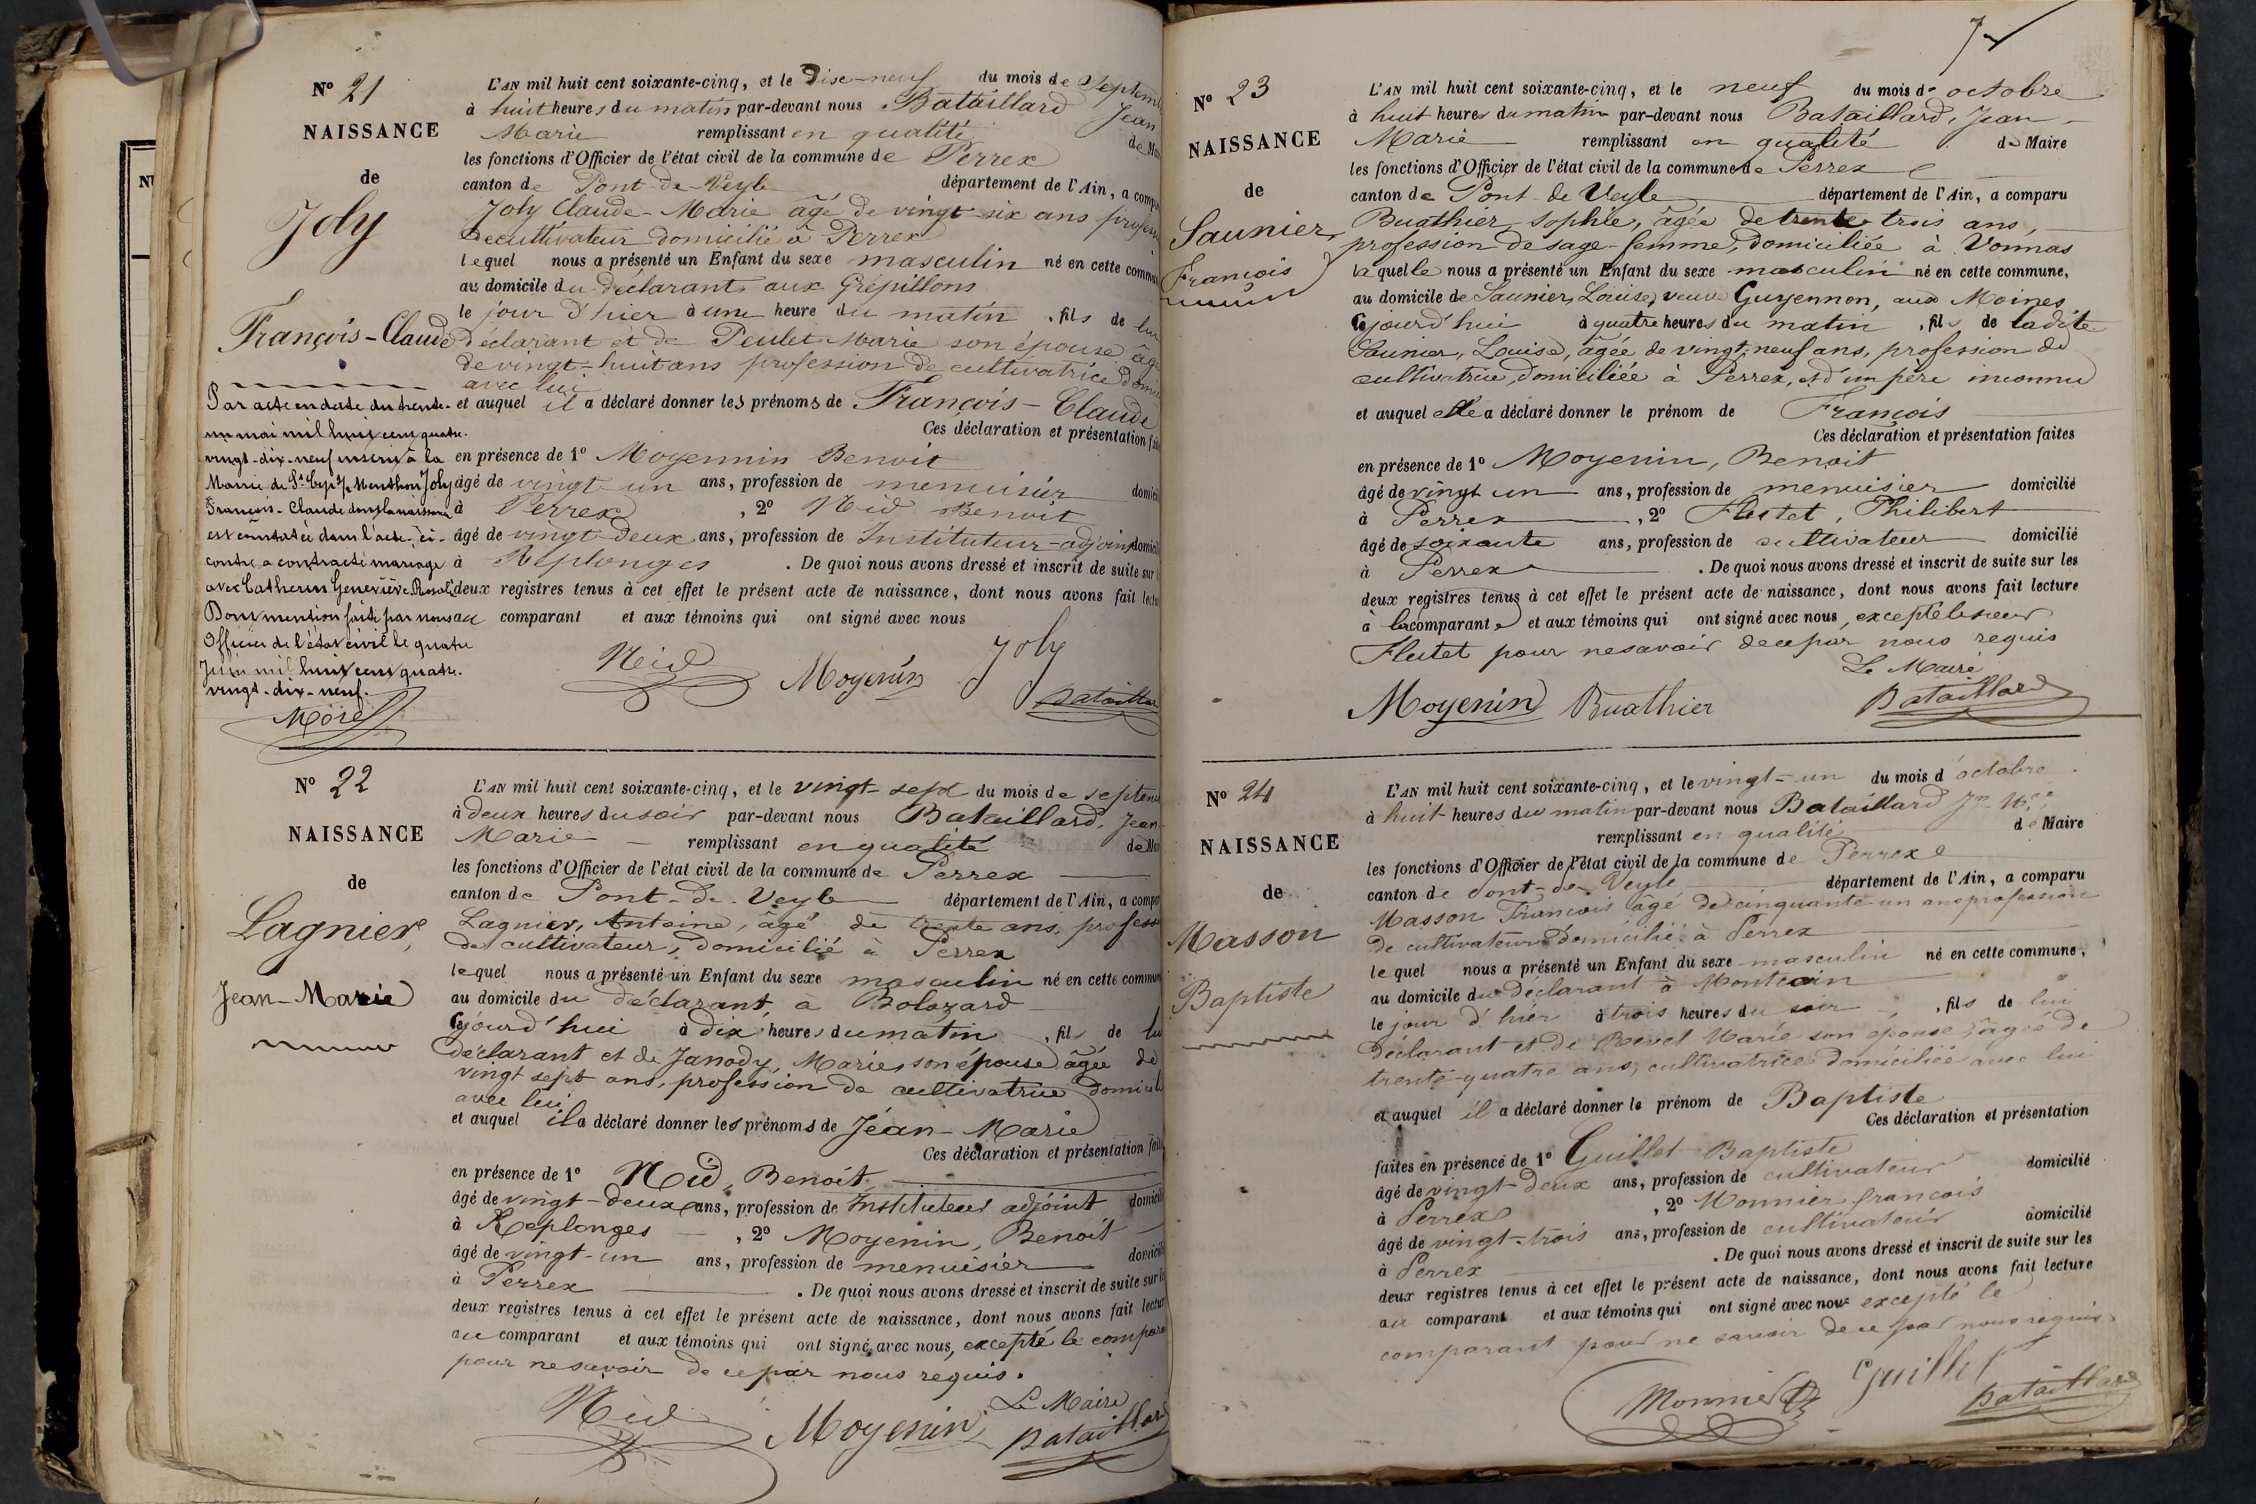 Nº 21
NAISSANCE
de
Joly
François-Claude
Par acte en date du trente-
un mai mil huit cent quatre-
vingt-dix-neuf inscrit à la
Mairie de St Cyr s/ Menthon Joly
François-Claude dont la naissance
est constatée dans l'acte ci-
contre a contracté mariage
avec Catherin Geneviève Rosalie
Dont mention faite par nous
Officier de l'état civil le quatre
Juin mil huit cent quatre-
vingt-dix-neuf.
Morel
L'AN mil huit cent soixante-cinq, et le Dix-neuf du mois de Septem
à huit heures du matin par-devant nous Bataillard Jean
Marie remplissant en qualité de M
les fonctions d'Officier de l'état civil de la commune de Perrex
canton de Pont-de-Veyle département de l'Ain, a comp
Joly Claude-Marie âgé de vingt-six ans profess
de cultivateur domicilié à Perrex
lequel nous a présenté un Enfant du sexe masculin né en cette commu
au domicile du déclarant aux Grépillons
le jour d'hier à une heure du matin, fils de lui
déclarant et de Peulet Marie son épouse âg
de vingt-huit ans profession de cultivatrice domi
avec lui
et auquel il a déclaré donner les prénoms de François-Claude
Ces déclaration et présentation fai
en présence de 1º Moyennin Benoit
âgé de vingt un ans, profession de menuisier domici
à Perrex, 2º Nid Benoit
âgé de vingt-deux ans, profession de Instituteur-adjoint domici
à Replonges. De quoi nous avons dressé et inscrit de suite sur
deux registres tenus à cet effet le présent acte de naissance, dont nous avons fait lectu
au comparant et aux témoins qui ont signé avec nous
Nid Moyenin Joly
Bataillar
Nº 22
NAISSANCE
de
Lagnier,
Jean-Marie
L'AN mil huit cent soixante-cinq, et le vingt-sept du mois de septem
à deux heures du soir par-devant nous Bataillard, Jean-
Marie remplissant en qualité de M
les fonctions d'Officier de l'état civil de la commune de Perrex
canton de Pont-de-Veyle département de l'Ain, a compa
Lagnier, Antoine, âgé de trente ans, profess
de cultivateur, domicilié à Perrex
lequel nous a présenté un Enfant du sexe masculin né en cette commun
au domicile du déclarant, à Bolozard
Cejourd'hui à dix heures du matin, fils de lu
déclarant et de Janody, Marie, son épouse âgée de
vingt sept ans, profession de cultivatrice domicili
avec lui
et auquel il a déclaré donner les prénoms de Jean-Marie
Ces déclaration et présentation fait
en présence de 1º Nid, Benoit
âgé de vingt-deux ans, profession de Instituteur adjoint domicili
à Replonges, 2º Moyenin, Benoit
âgé de vingt-un ans, profession de menuisier domicili
à Perrex. De quoi nous avons dressé et inscrit de suite sur le
deux registres tenus à cet effet le présent acte de naissance, dont nous avons fait lectur
au comparant et aux témoins qui ont signé avec nous, excepté le compara
pour ne savoir de ce par nous requis.
Le Maire
Nid Moyenin Bataillard
7
Nº 23
NAISSANCE
de
Saunier,
François
L'AN mil huit cent soixante-cinq, et le neuf du mois d' octobre
à huit heures du matin par-devant nous Bataillard, Jean-
Marie remplissant en qualité de Maire
les fonctions d'Officier de l'état civil de la commune de Perrex
canton de Pont-de-Veyle département de l'Ain, a comparu
Buathier, Sophie, âgée de trente-trois ans,
profession de sage-femme, domiciliée à Vonnas
laquelle nous a présenté un Enfant du sexe masculin né en cette commune,
au domicile de Saunier, Louise, veuve Guyennon, aux Moines
Cejourd'hui à quatre heures du matin, fils de ladite
Saunier, Louise, âgée de vingt-neuf ans, profession de
cultivatrice, domiciliée à Perrex, et d'un père inconnu
et auquel elle a déclaré donner le prénom de François
Ces déclaration et présentation faites
en présence de 1º Moyenin, Benoit
âgé de vingt un ans, profession de menuisier domicilié
à Perrex, 2º Flutet, Philibert
âgé de soixante ans, profession de cultivateur domicilié
à Perrex. De quoi nous avons dressé et inscrit de suite sur les
deux registres tenus à cet effet le présent acte de naissance, dont nous avons fait lecture
à la comparante et aux témoins qui ont signé avec nous, excepté le sieur
Flutet pour ne savoir de ce par nous requis
Le Maire
Moyenin Buathier Bataillard
Nº 24
NAISSANCE
de
Masson
Baptiste
L'AN mil huit cent soixante-cinq, et le vingt-un du mois d' octobre
à huit heures du matin par-devant nous Bataillard Jn Mie
remplissant en qualité de Maire
les fonctions d'Officier de l'état civil de la commune de Perrex
canton de Pont-de-Veyle département de l'Ain, a comparu
Masson François âgé de cinquante-un ans profession
de cultivateur domicilié à Perrex
lequel nous a présenté un Enfant du sexe masculin né en cette commune,
au domicile du déclarant à Montcoin
le jour d'hier à trois heures du soir, fils de lui
déclarant et de Revel Marie son épouse, âgée de
trente-quatre ans, cultivatrice domiciliée avec lui
et auquel il a déclaré donner le prénom de Baptiste
Ces déclaration et présentation
faites en présence de 1º Guillet Baptiste
âgé de vingt-deux ans, profession de cultivateur domicilié
à Perrex, 2º Monnier françois
âgé de vingt-trois ans, profession de cultivateur domicilié
à Perrex. De quoi nous avons dressé et inscrit de suite sur les
deux registres tenus à cet effet le présent acte de naissance, dont nous avons fait lecture
au comparant et aux témoins qui ont signé avec nous excepté le
comparant pour ne savoir de ce par nous requis.
Monnier Guillet Bataillard